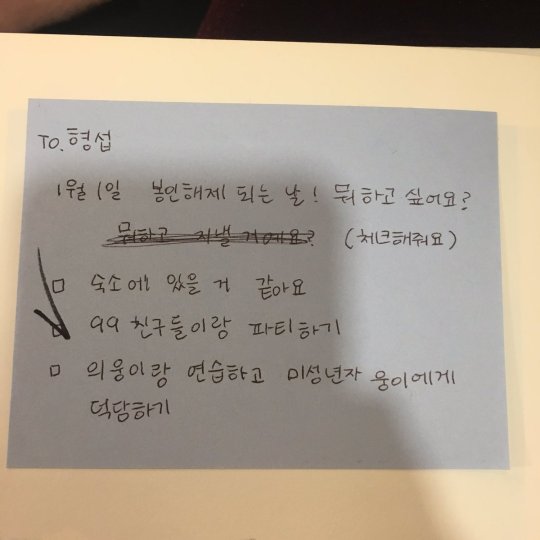 TO. 형섭
1월 1일 봉인해제 되는 날! 뭐하고 싶어요?
뭐하고 지낼 거예요? (체크해줘요)
□ 숙소에 있을 거 같아요
□ 99 친구들이랑 파티하기
□ 의웅이랑 연습하고 미성년자 웅이에게
덕담하기